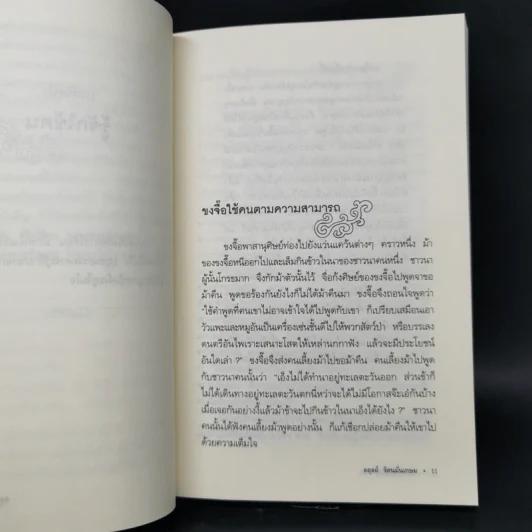 ขงจื๊อใช้คนตามความสามารถ
ขงจื๊อพาสานุศิษย์ท่องไปยังแว่นแคว้นต่างๆ คราวหนึ่ง ม้า
ของขงจื๊อหนีออกไปและเล็มกินข้าวในนาของชาวนาคนหนึ่ง ชาวนา
ผู้นั้นโกรธมาก จึงกักม้าตัวนั้นไว้ จื่อกังศิษย์ของขงจื๊อไปพูดจาขอ
ม้าคืน พูดขอร้องกันยังไงก็ไม่ได้ม้าคืนมา ขงจื๊อจึงถอนใจพูดว่า
"ใช้คำพูดที่คนเขาไม่อาจเข้าใจได้ไปพูดกับเขา ก็เปรียบเสมือนเอา
วัวแพะและหมูอันเป็นเครื่องเซ่นชั้นดีไปให้พวกสัตว์ป่า หรือบรรเลง
ดนตรีอันไพเราะเสนาะโสตให้เหล่านกกาฟัง แล้วจะมีประโยชน์
อันใดเล่า ?" ขงจื๊อจึงส่งคนเลี้ยงม้าไปขอม้าคืน คนเลี้ยงม้าไปพูด
กับชาวนาคนนั้นว่า "เอ็งไม่ได้ทำนาอยู่ทะเลตะวันออก ส่วนข้าก็
ไม่ได้เดินทางอยู่ทะเลตะวันตกนี่หว่าจะได้ไม่มีโอกาสจ๊ะเอ๋กันบ้าง
เมื่อเจอกันอย่างงี้แล้วม้าข้าจะไปกินข้าวในนาเอ็งได้ยังไง ?" ชาวนา
คนนั้นได้ฟังคนเลี้ยงม้าพูดอย่างนั้น ก็แก้เชือกปล่อยม้าคืนให้เขาไป
ด้วยความเต็มใจ
อดุลย์ รัตนมั่นเกษม • 11